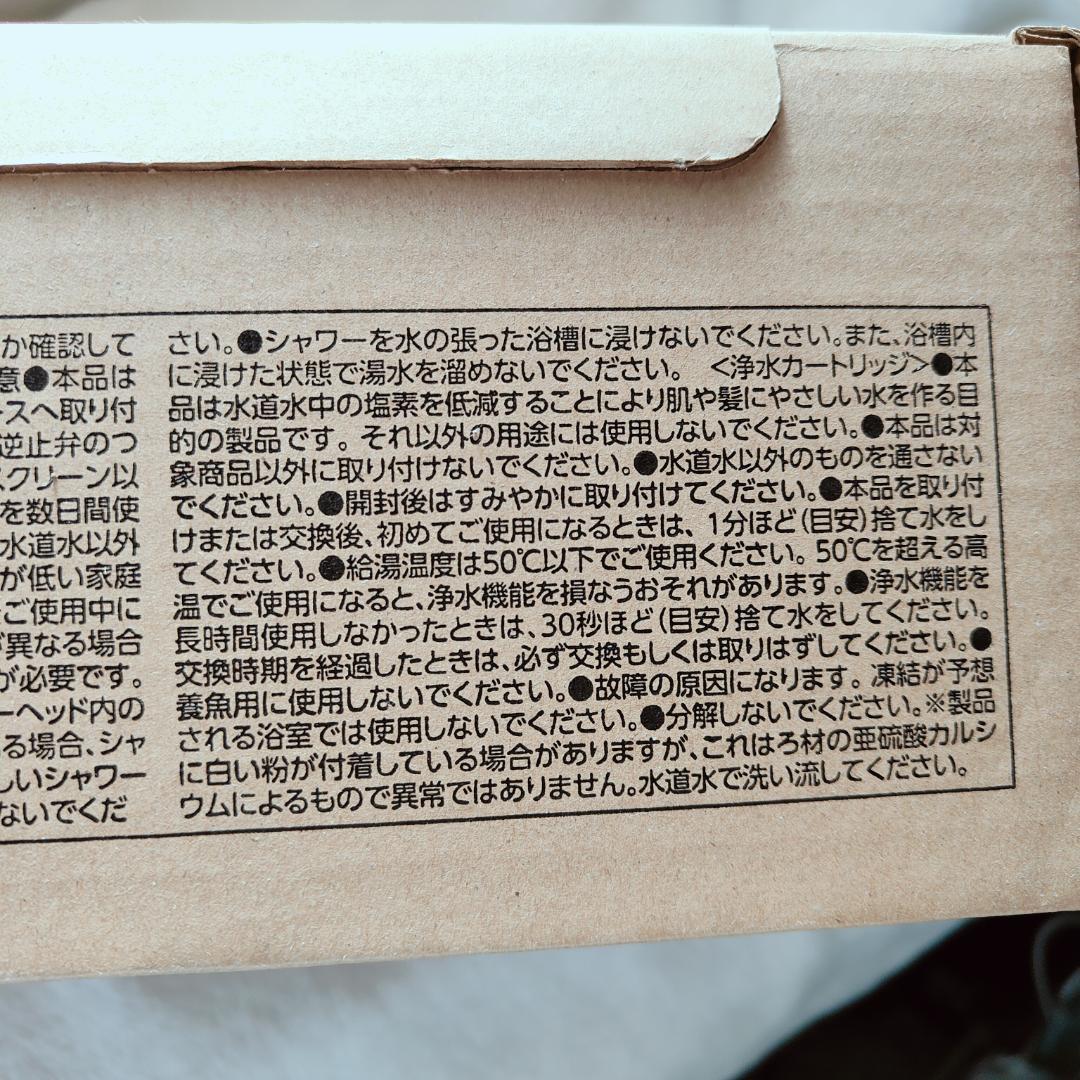 か確認して
意●本品は
スへ取り付
逆止弁のつ
スクリーン以
を数日間使
水道水以外
が低い家庭
ご使用中に
異なる場合
が必要です。
ーヘッド内の
る場合、シャ
しいシャワー
ないでくだ
さい。●シャワーを水の張った浴槽に浸けないでください。また、浴槽内
に浸けた状態で湯水を溜めないでください。 <浄水カートリッジ>●本
品は水道水中の塩素を低減することにより肌や髪にやさしい水を作る目
的の製品です。それ以外の用途には使用しないでください。●本品は対
象商品以外に取り付けないでください。●水道水以外のものを通さない
でください。●開封後はすみやかに取り付けてください。●本品を取り付
けまたは交換後、初めてご使用になるときは、1分ほど(目安)捨て水をし
てください。●給湯温度は50℃以下でご使用ください。50℃を超える高
温でご使用になると、浄水機能を損なうおそれがあります。●浄水機能を
長時間使用しなかったときは、30秒ほど(目安)捨て水をしてください。
交換時期を経過したときは、必ず交換もしくは取りはずしてください。●
養魚用に使用しないでください。●故障の原因になります。凍結が予想
される浴室では使用しないでください。●分解しないでください。※製品
に白い粉が付着している場合がありますが、これはろ材の亜硫酸カルシ
ウムによるもので異常ではありません。水道水で洗い流してください。